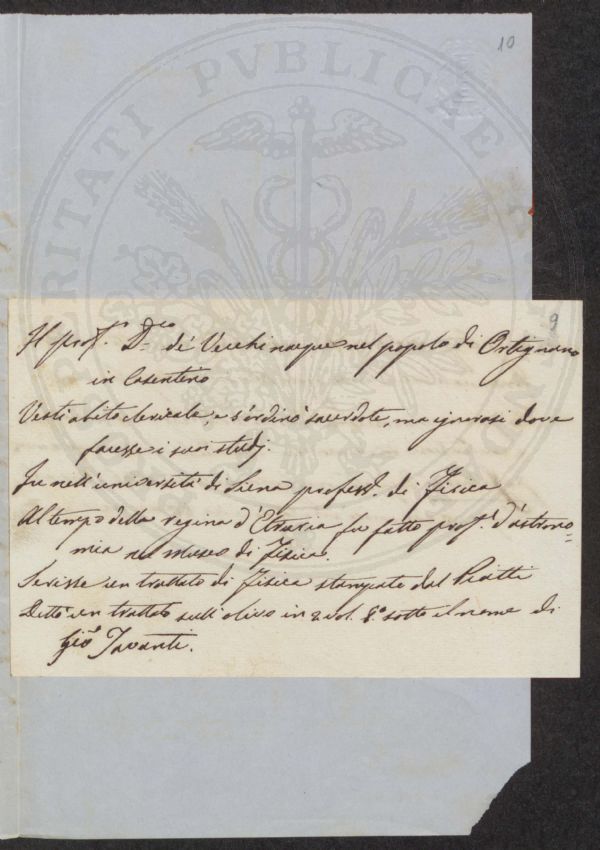 10
9
Il prof.r D.co de' Vecchi nacque nel popolo di Ortignano
in Casentino
Vestì abito clericale, e s'ordinò sacerdote, ma ignorasi dove
facesse i suoi studj.
Fu nell'università di Siena profess.r di Fisica
Al tempo della regina d'Etruria fu fatto prof.r d'astrono=
mia nel museo di Fisica.
Scrisse un trattato di Fisica stampato dal Piatti
Dettò un trattato sull'olivo in 2 vol. 8.o sotto il nome di
Gio. Tavanti.